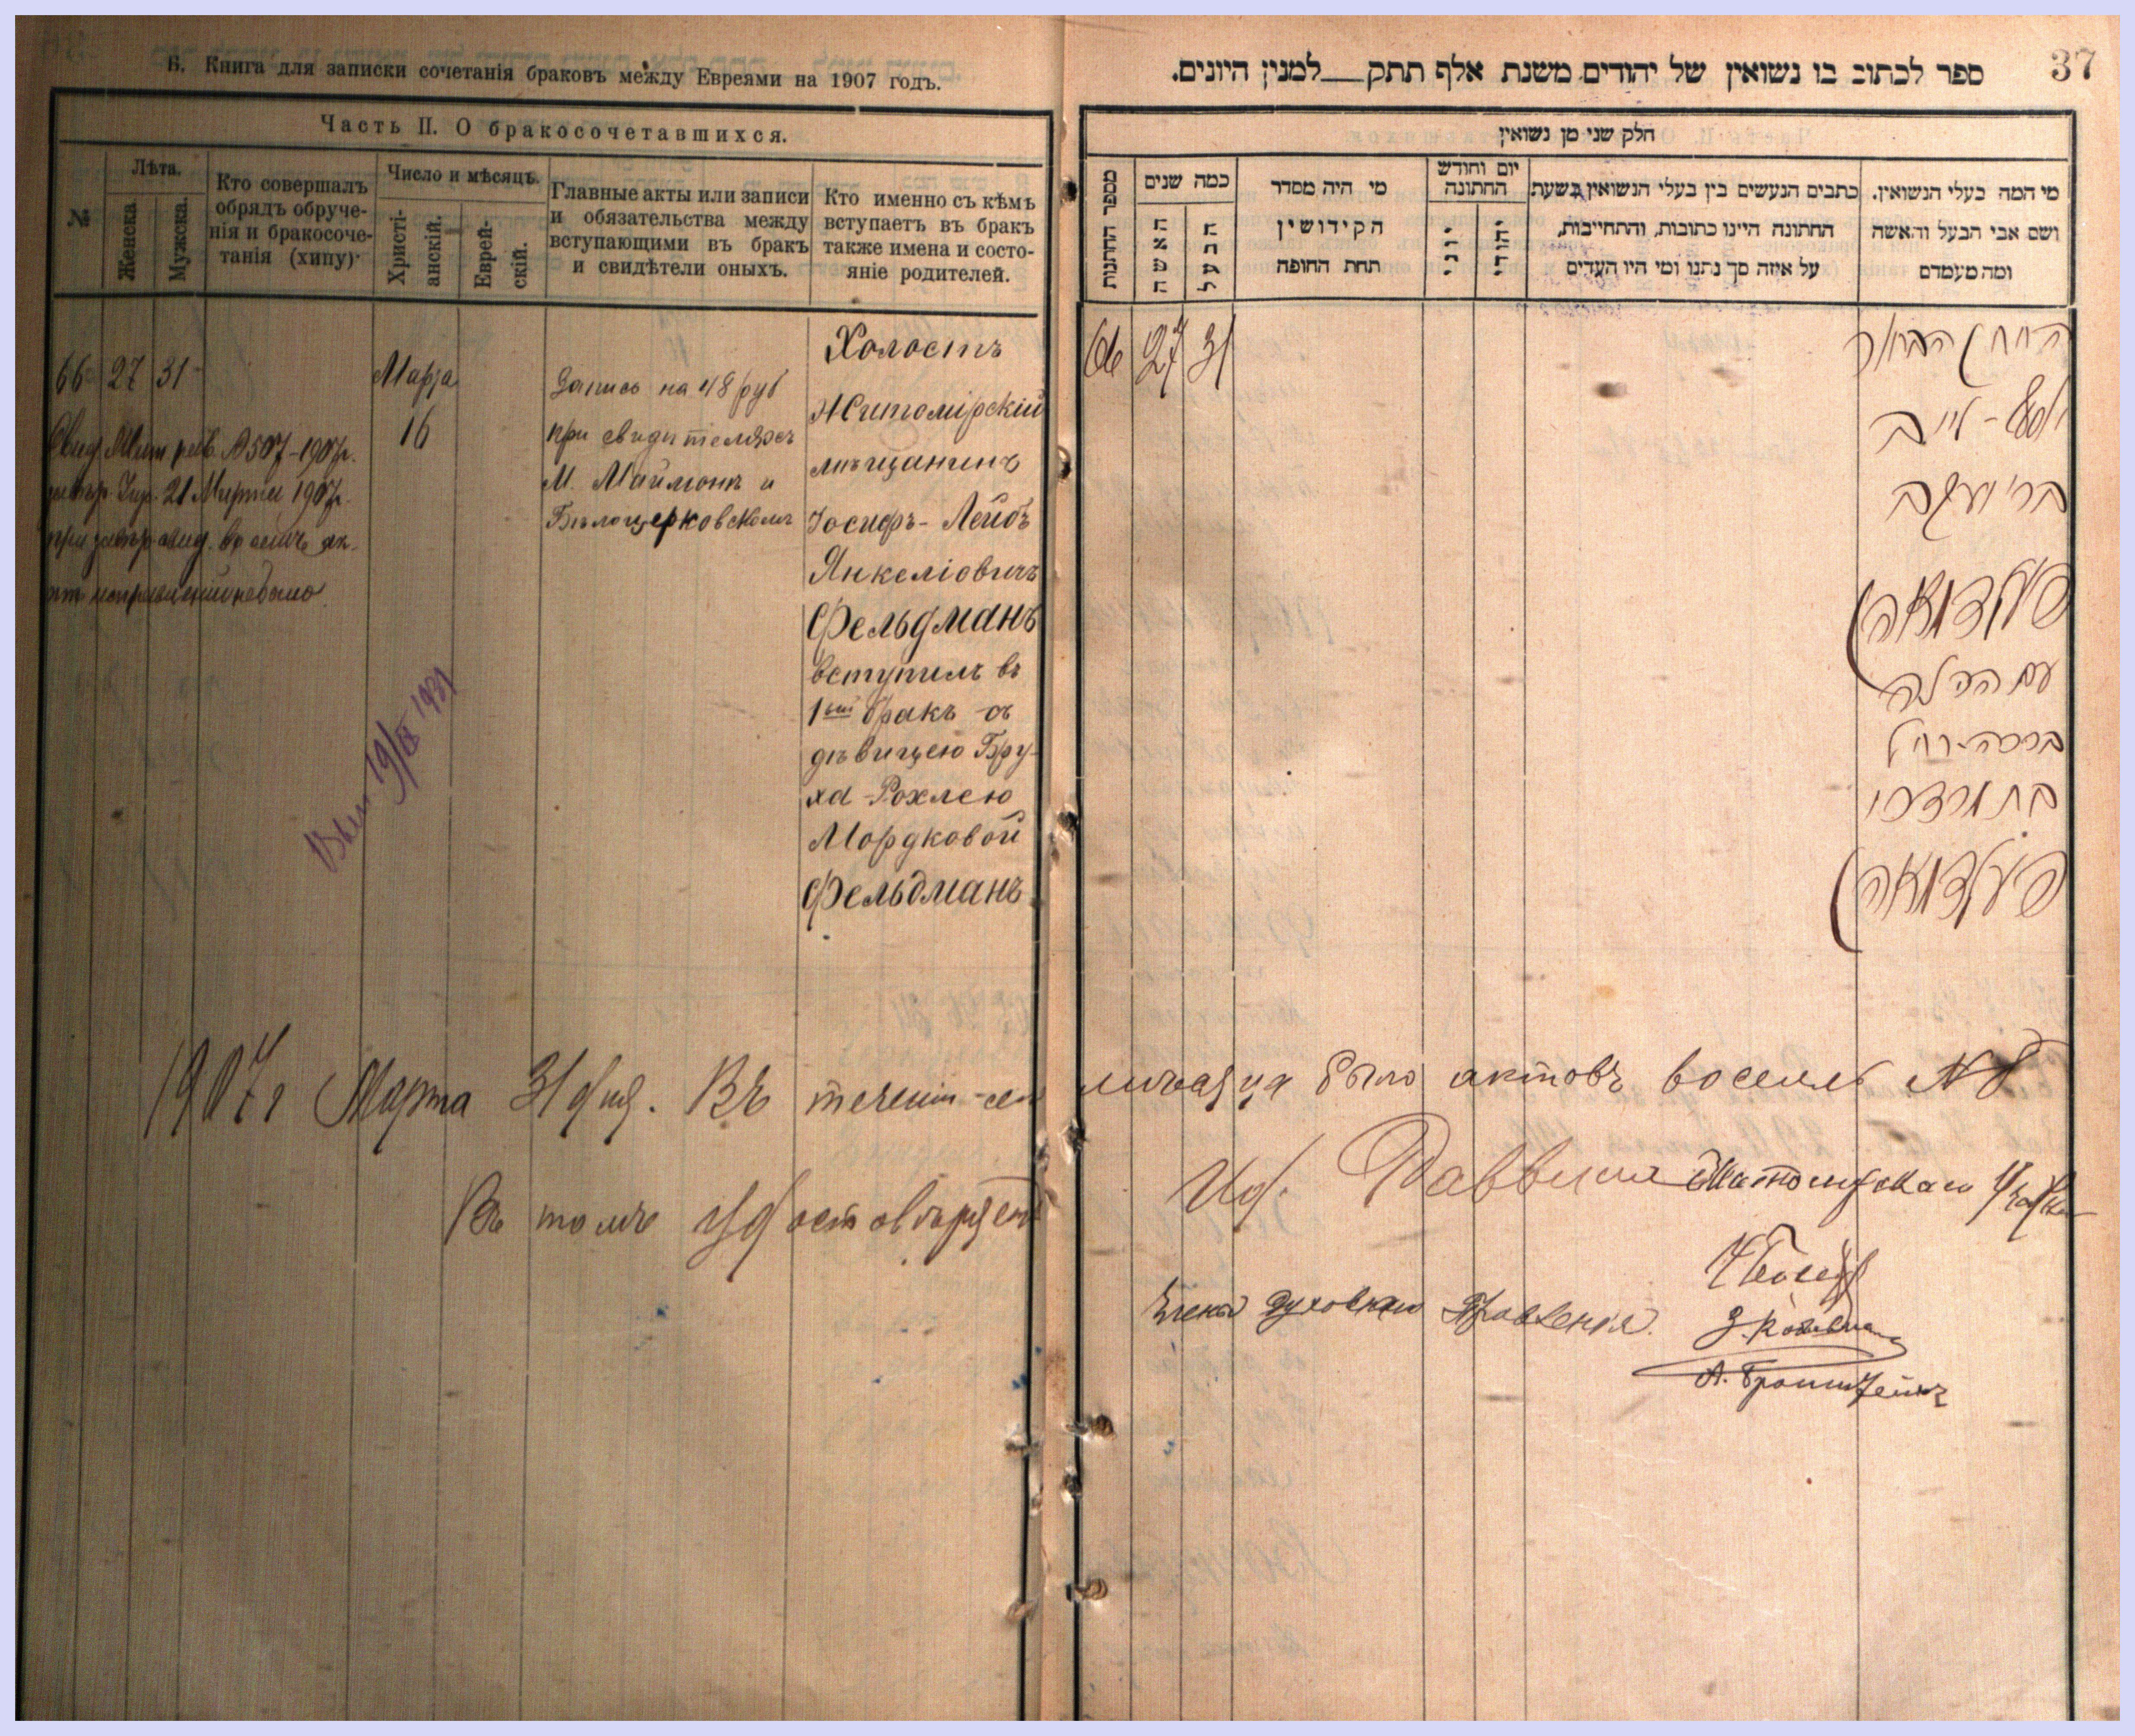 Б. Книга для записки сочетанія браковъ между Евреями на 1907 годъ.
Часть II. О бракосочетавшихся.
№
Лѣта.
Женска.
Мужска.
Кто совершалъ
обрядъ обруче-
нія и бракосоче-
танія (хипу).
Число и мѣсяцъ.
Христі-
анскій.
Еврей-
скій.
Главные акты или записи
и обязательства между
вступающими въ бракъ
и свидѣтели оныхъ.
Кто именно съ кѣмъ
вступаетъ въ бракъ
также имена и состо-
яніе родителей.
66 27 31
Марта
16
№ 507-1907г.
21 Марта 1907г.
Запись на 48 руб
при свидѣтеляхъ
М. Маймонъ и
Бѣлоцерковскомъ
Холостъ
Житомірскій
мѣщанинъ
Іосифъ-Лейбъ
Янкеліовичъ
Фельдманъ
вступилъ въ
1ый бракъ съ
дѣвицею Бру-
ха-Рохлею
Мордковой
Фельдманъ
19/IX 1931
37
ספר לכתוב בו נשואין של יהודים משנת אלף תתק__למנין היונים.
חלק שני מן נשואין
מספר החתונות
כמה שנים
האשה
הבעל
מי היה מסדר
הקידושין
תחת החופה
יום וחודש
החתונה
יוני
יהודי
כתבים הנעשים בין בעלי הנשואין בשעת
החתונה היינו כתובות, והתחייבות,
על איזה סך נתנו ומי היו העדים
מי המה בעלי הנשואין.
ושם אבי הבעל והאשה
ומה מעמדם
66 27 31
החתן הבחור
יוסף-לייב
בר' יעקב
פעלדמאן
עם הכלה
ברכה-רחל
בת מרדכי
פעלדמאן
1907г Марта 31 дня. Въ теченіи сего мѣсяца было актовъ восемь № 8
Въ томъ удостовѣряемъ Иоб. Раввина Житомірскаго
Члены Духовнаго Правленія.
А. Бронштейнъ